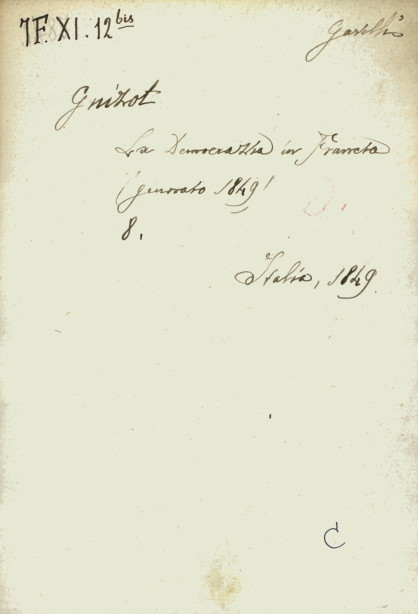 7F. XI. 12 bis
Guizot
La Democrazia in Francia
(gennato 1849)
8.
Italia, 1849
C